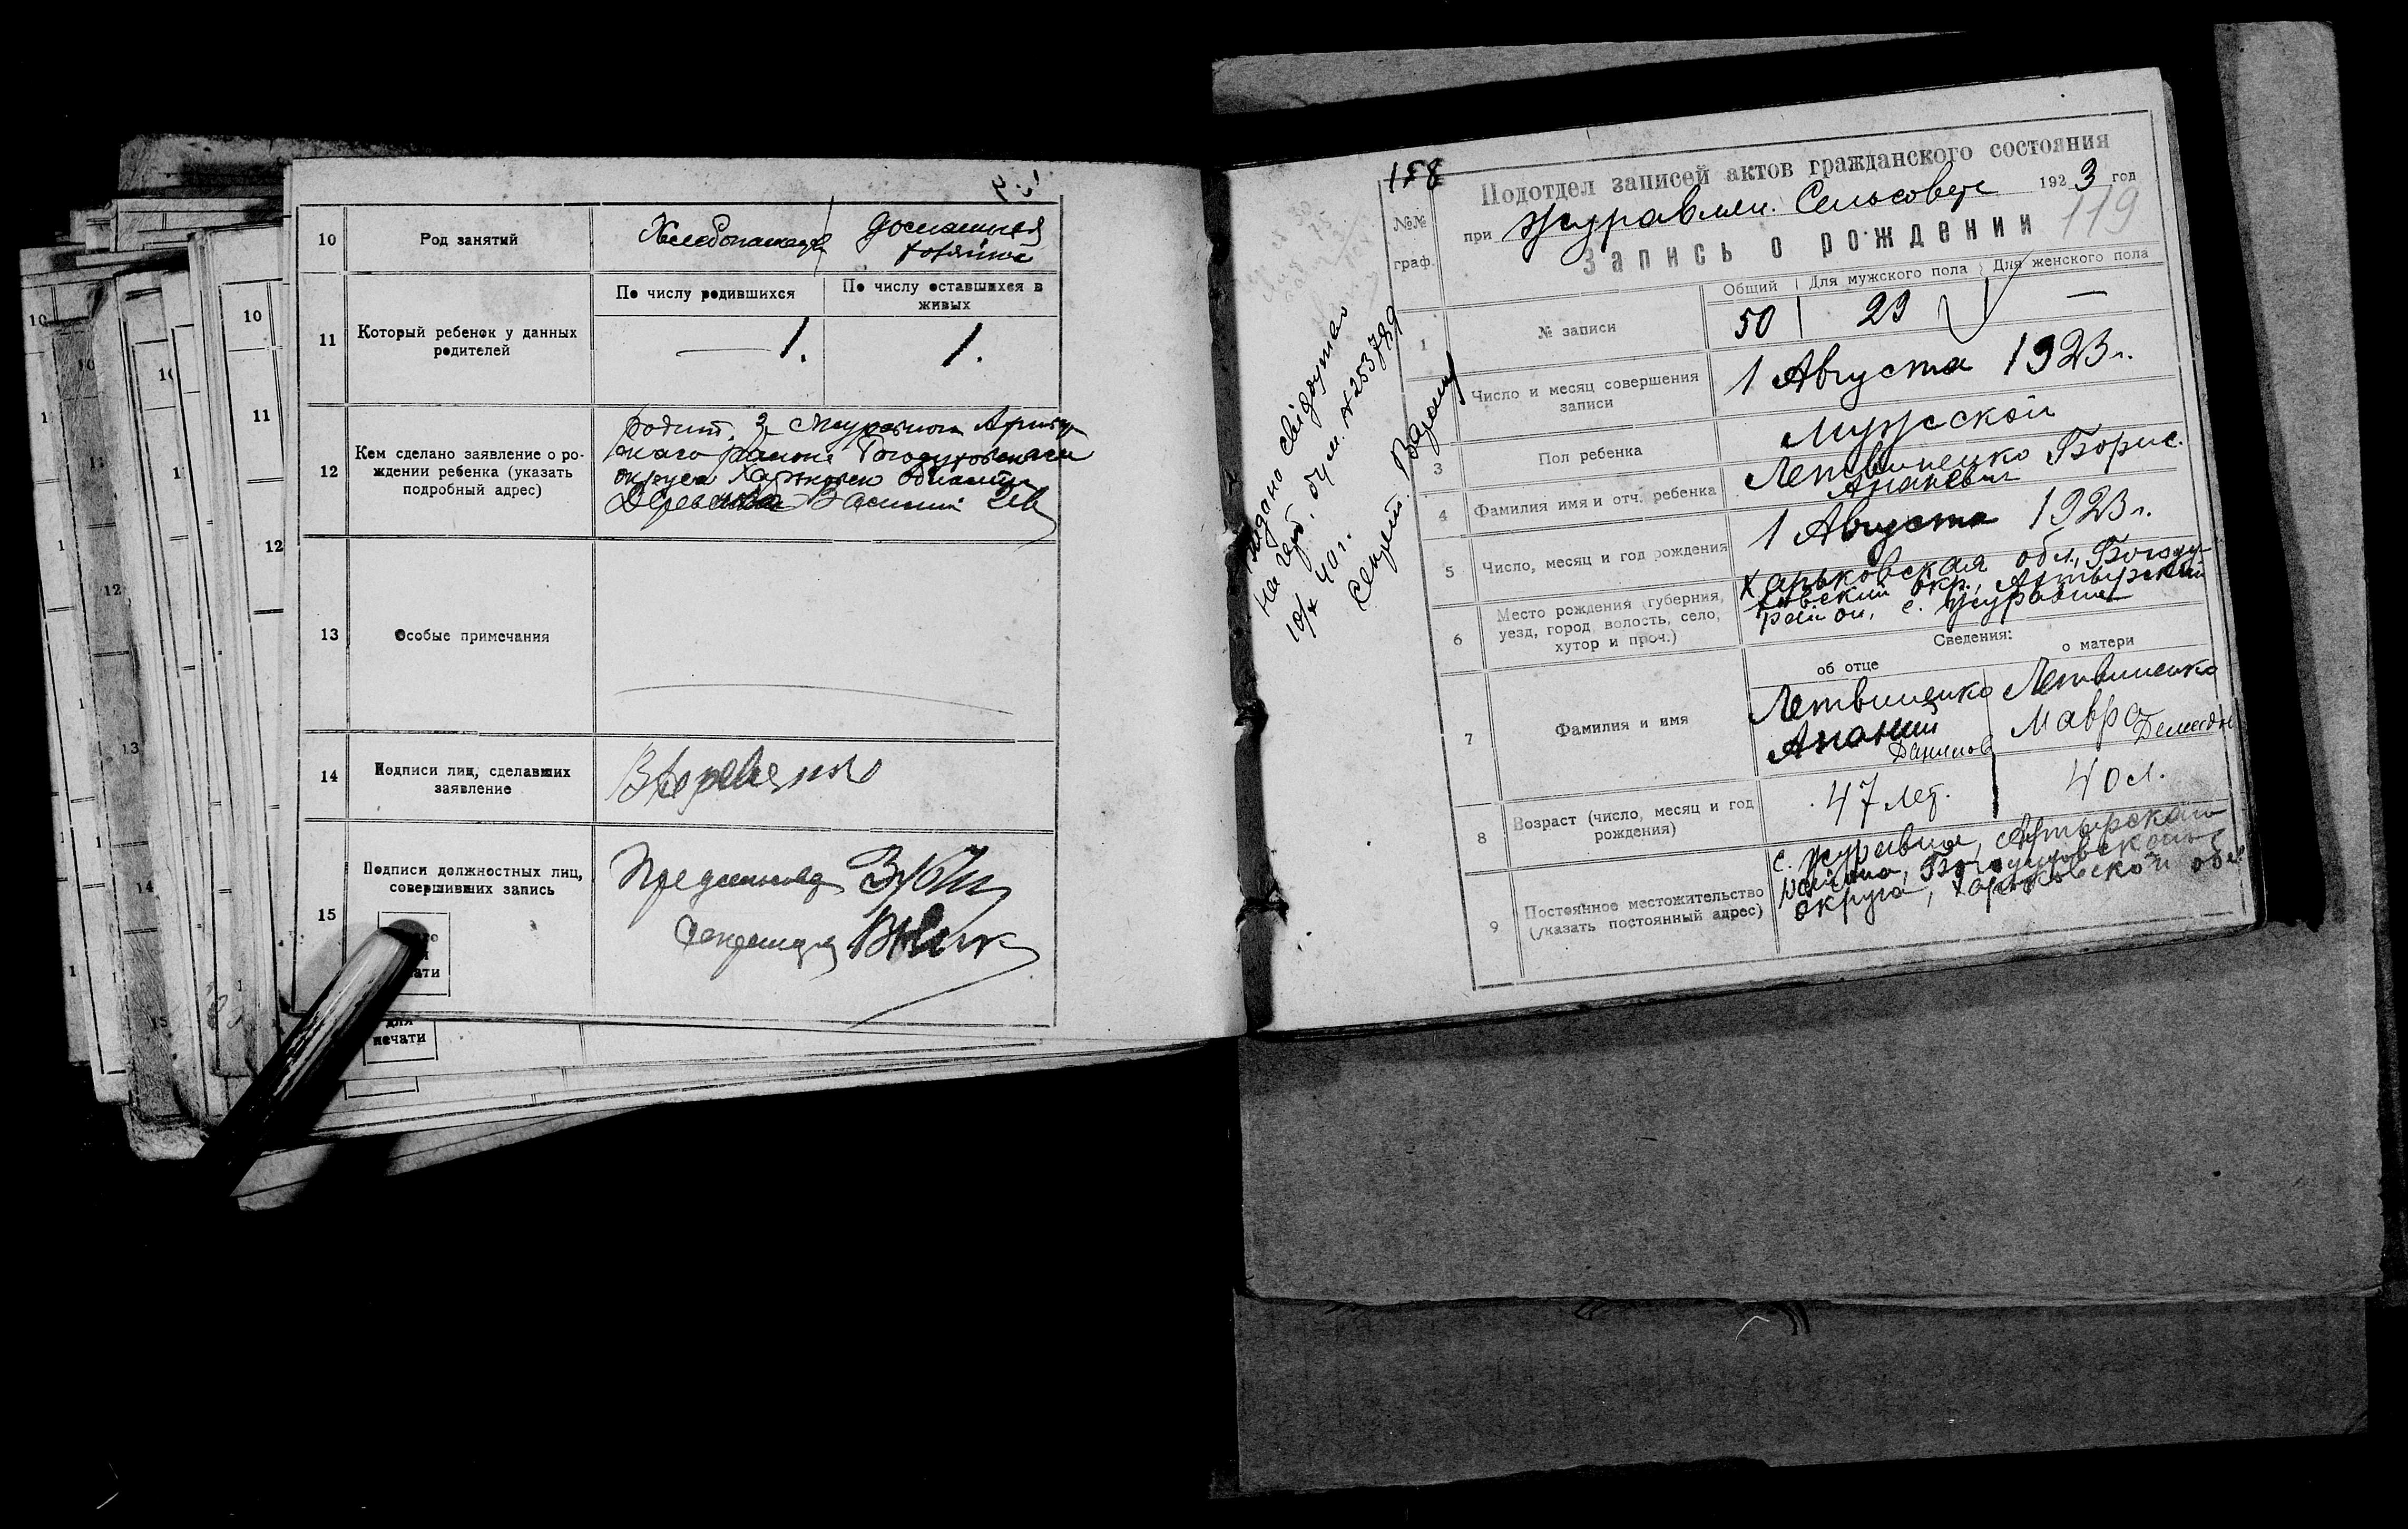 10
Род занятий
Хлебопашец
домашняя
хозяйка
11
Который ребенок у данных
родителей
По числу родившихся
По числу оставшихся в
живых
1.
1.
12
Кем сделано заявление о ро-
ждении ребенка (указать
подробный адрес)
округа
Василий
13
Особые примечания
14
Подписи лиц, сделавших
заявление
15
Подписи должностных лиц,
совершивших запись
для
печати
158
Подотдел записей актов гражданского состояния
при Журавлен. Сельсовете 1923 год
119
Запись о рождении
№№
граф.
1
№ записи
Общий
Для мужского пола
Для женского пола
50
29
—
Число и месяц совершения
записи
1 Августа 1923 г.
3
Пол ребенка
Мужской
4
Фамилия имя и отч. ребенка
Летвиненко Борис.
Ананевич
5
Число, месяц и год рождения
1 Августа 1923 г.
6
Место рождения (губерния,
уезд, город, волость, село,
хутор и проч.)
Харьковская обл., Богоду-
ховский окр., Ахтырский
район, с. Журавли
Сведения:
об отце
о матери
7
Фамилия и имя
Летвиненко
Ананий
Данилов
Летвиненко
Мавра
Демидов
8
Возраст (число, месяц и год
рождения)
47 лет.
40 л.
9
Постоянное местожительство
(указать постоянный адрес)
с. Журавли, Ахтырского
района, Богодуховского
округа, Харьковской обл.
Видано свідоцтво
на герб. бум. № 253789
10/X 40 г.
Секрет.